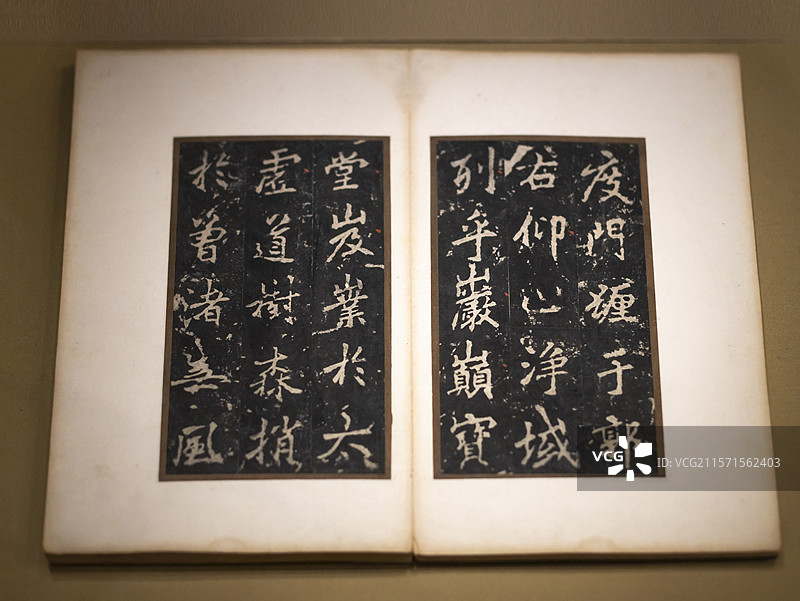 度門纏于郭
右仰止淨域
列乎巖巔寶
堂岌嶪於太
虛道樹森捎
於曾渚無風
VCG
ID:VCG211571562403